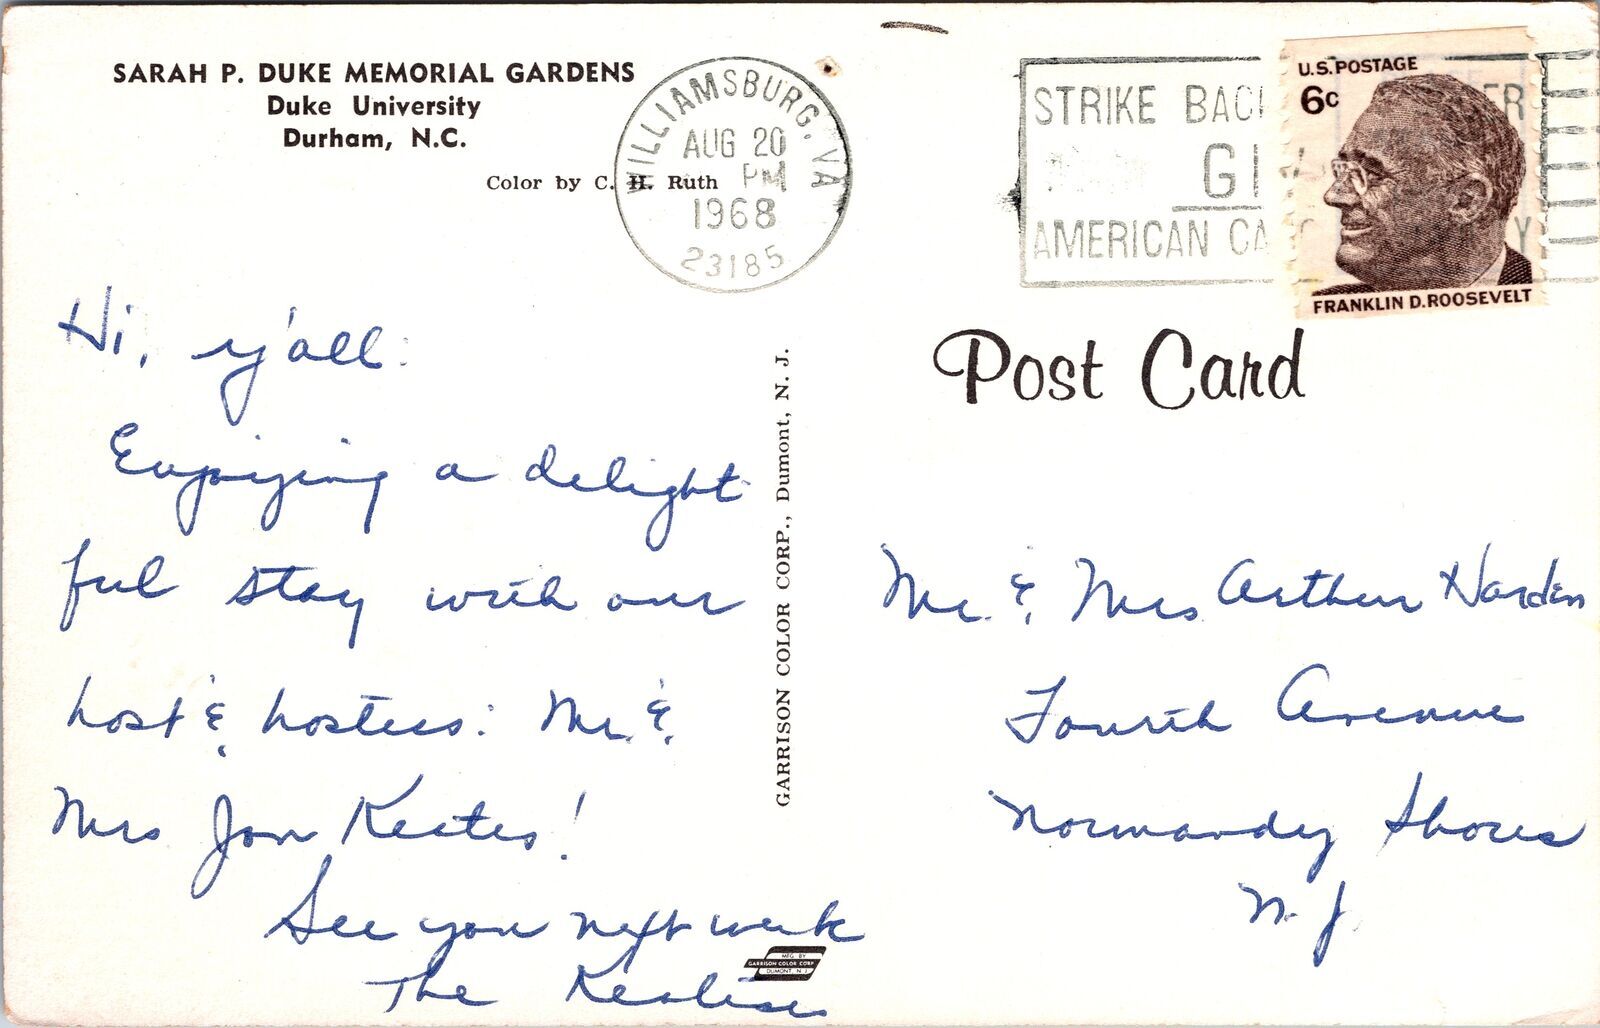 SARAH P. DUKE MEMORIAL GARDENS
Duke University
Durham, N.C.
Color by C. H. Ruth
WILLIAMSBURG, VA
AUG 20
PM
1968
23185
STRIKE BAC ER
GI
AMERICAN CA Y
U.S. POSTAGE
6c
FRANKLIN D. ROOSEVELT
Hi, y'all:
Enjoying a delight
ful stay with our
host & hostess: Mr. &
Mrs Jon Keates!
See you next week
The
GARRISON COLOR CORP., Dumont, N. J.
MFG. BY
GARRISON COLOR CORP
DUMONT, N J
Post Card
Mr. & Mrs Arthur Harden
Fourth Avenue
Normandy Shores
N. J.